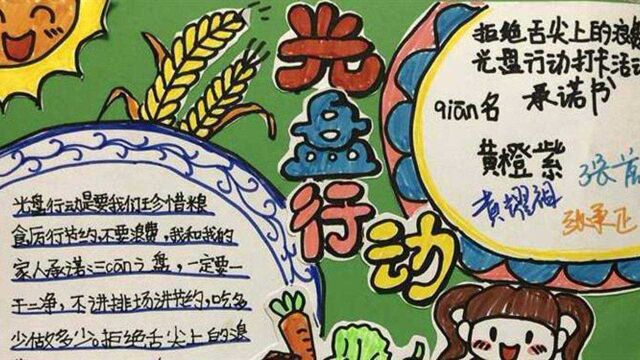 光盘行动
光盘行动是要我们珍惜粮
食厉行节约,不要浪费,我和我的
家人承诺:三cān之盘,一定要一
干二净,不讲排场讲节约,吃多
少做多少。拒绝舌尖上的浪
拒绝舌尖上的浪费
光盘行动打卡活动
承诺书
qiān名
黄橙紫